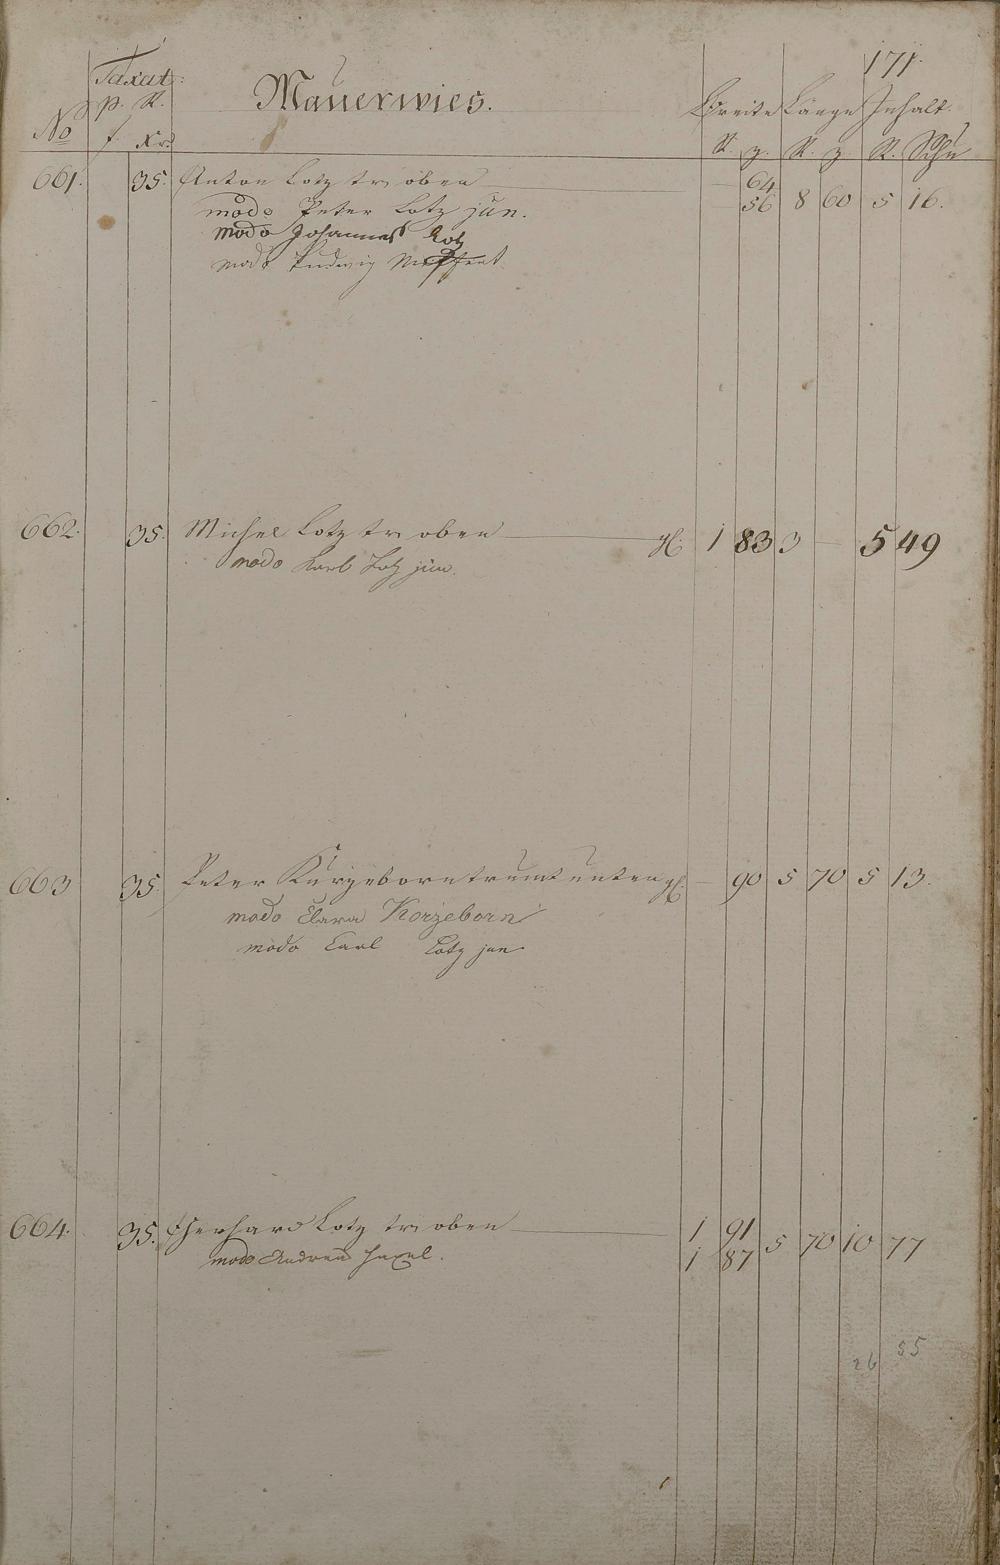 171.
Taxat:
Mauerwies.
No p. R. Breite Länge Inhalt.
f. Xr. R. z. R. z R. Schu
661. 35. Anton Lotz tr: oben 64
56 8 60 5 16.
modo Peter Lotz jun.
modo Johannes Lotz
modo Ludwig
662. 35. Michel Lotz tr: oben gl. 1 83 3 — 5 49
modo Karl Lotz jun.
663 35. Peter Kurzeborn trumt unten gl. — 90 5 70 5 13.
modo Clara Korzeborn
modo Carl Lotz jun
664. 35. Eherhard Lotz tr: oben 1 91
1 87 5 70 10 77
modo Andreas
26 55